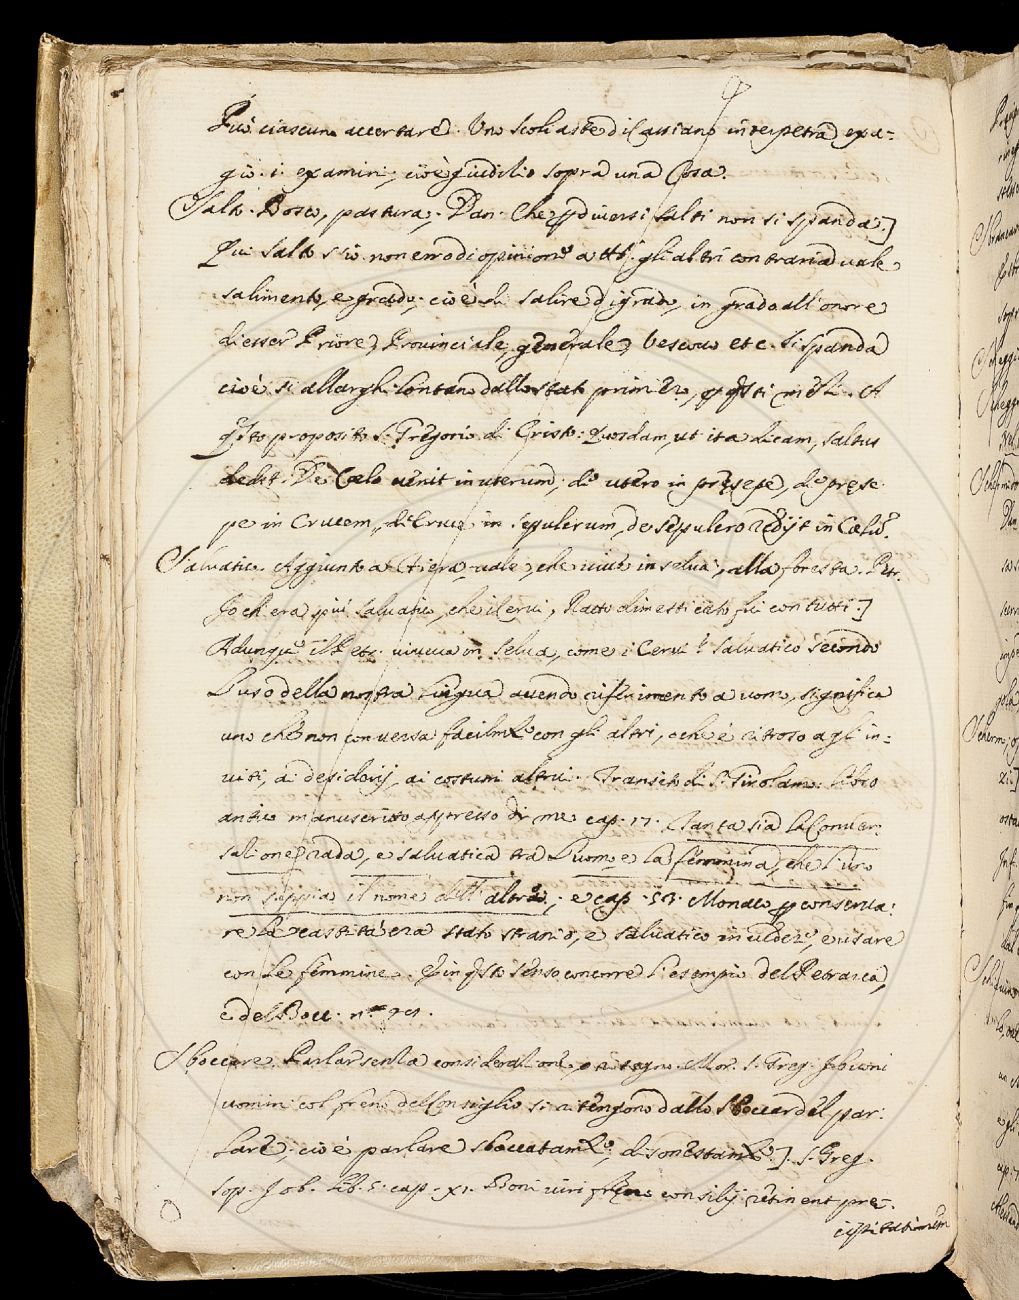 Può ciascuno accertare. Uno Scoliaste di Cassiano interpetra exa-
gio. i. examini, cioè giudizio sopra una Cosa.
Salto. Bosco, pastura. Dan. Che per diversi salti non si spanda.]
Qui Salto s'io non erro di opinione gli altri contraria vale
salimento, e grado, cioè di salire di grado, in grado all'onore
di esser Priore, Provinciale, generale, Vescovo etc. si spanda
cioè si allarghi lontano dallo stato primiero, per questi mezzi. A
questo proposito S. Gregorio di Cristo: Quosdam, ut ita dicam, saltus
dedit. De Cœlo venit in uterum, de utero in pręsepe, de pręse-
pe in Crucem, de Cruce in Sepulcrum, de sepulcro redijt in Cœlū.
Salvatico. Aggiunto a Fiera, vale, che vive in selva, alla foresta. Petr.
Io ch'era più salvatico, che i cervi, Ratto dimesticato fui con tutti.]
Adunque il Petr. viveva in selva, come i Cervi? Salvatico secondo
l'uso della nostra Lingua avendo riferimento a uomo, significa
uno che non conversa facilmte con gli altri, e che è ritroso agli in-
viti, a desiderij, ai costumi altrui. Transito di S. Girolamo: libro
antico manuscritto appresso di me cap. 17. Tanta sia la Conver-
sazione rada, e salvatica tra l'uomo e la femmina, che l'uno
non sappia il nome dell'altro; e cap. 53. Monaco per conserva-
re la castità era stato strano, e salvatico in vedere, e usare
con le femmine. E in qsto senso concorre l'esempio del Petrarca,
e del Bocc. n.
Sboccare. Parlar senza considerazione, o ritegno. Mor. S. Greg. I buoni
uomini col freno del Consiglio si ritengono dallo sboccar del par-
lare, cioè parlare sboccatamte, disonestamte.] S. Greg.
sop. Job. Lib. 5. cap. XI. Boni viri freno consilij retinent prę-
cipitationem